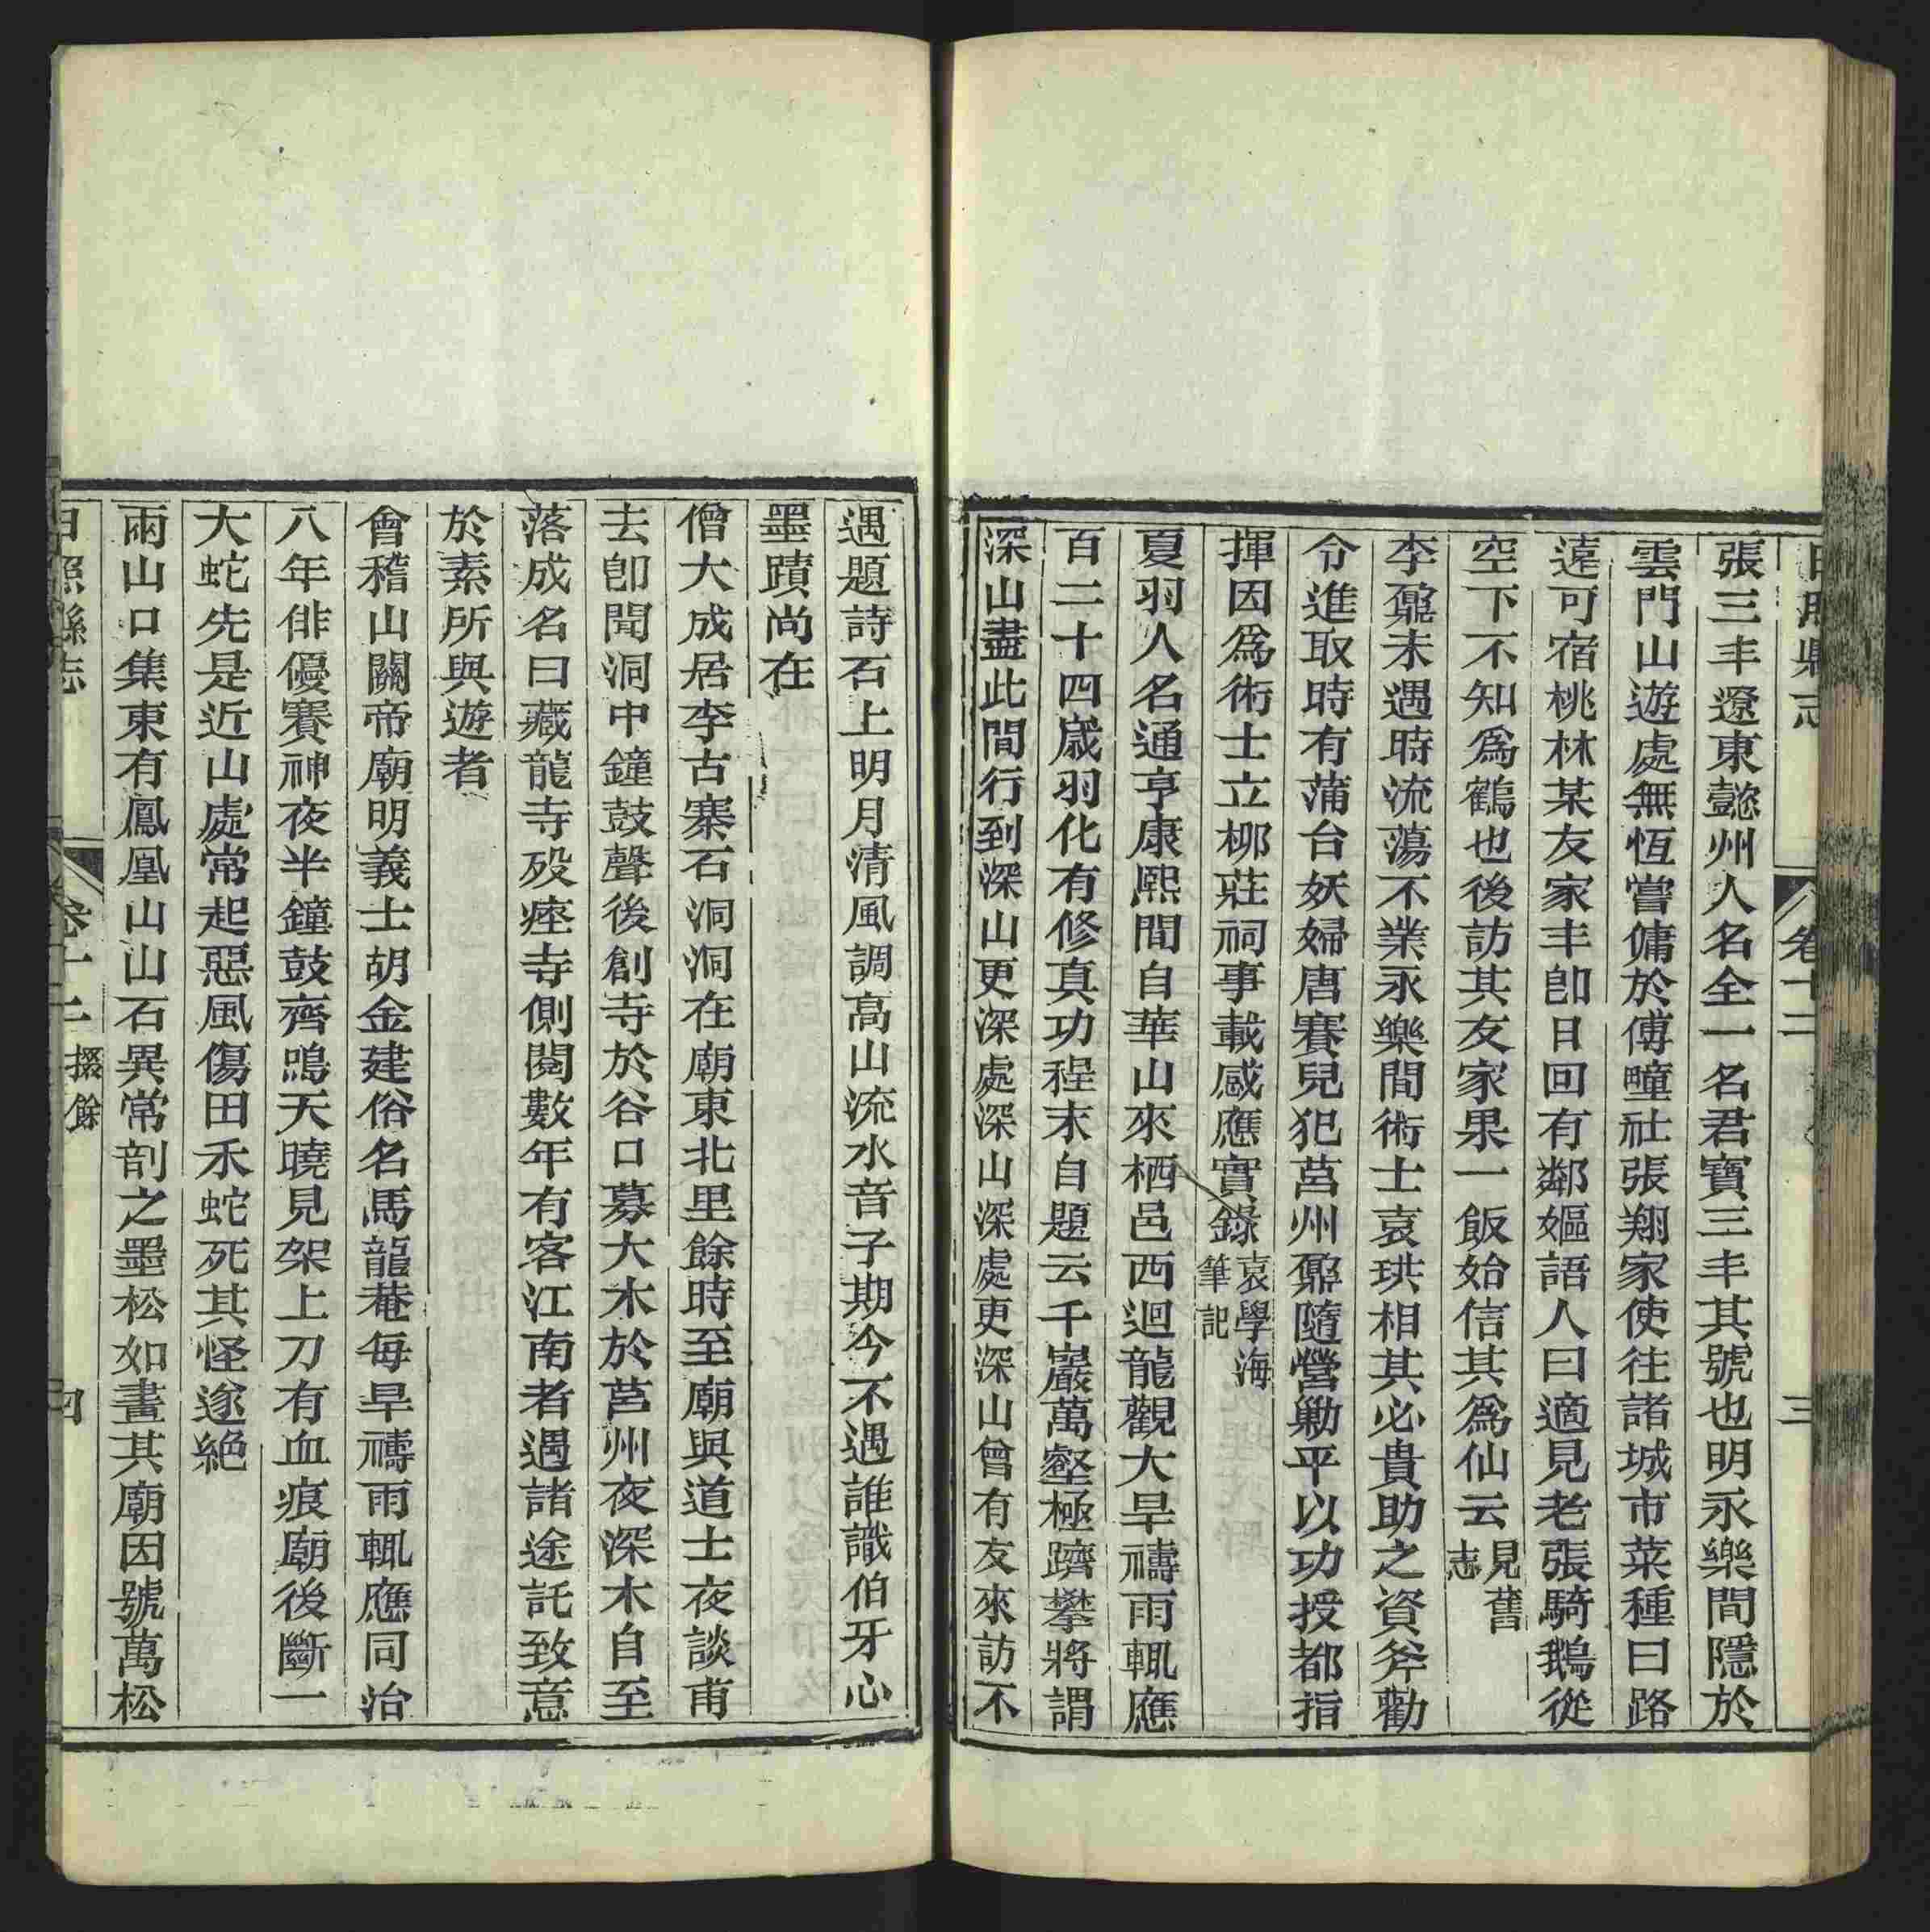 日照縣志 卷十二 三
張三丰遼東懿州人名全一名君寶三丰其號也明永樂間隱於
雲門山遊處無恆嘗傭於傅疃社張翔家使往諸城市菜種曰路
遠可宿桃林某友家丰卽日回有鄰嫗語人曰適見老張騎鵝從
空下不知爲鶴也後訪其友家果一飯始信其爲仙云見舊志
李鼐未遇時流蕩不業永樂間術士袁珙相其必貴助之資斧勸
令進取時有蒲台妖婦唐賽兒犯莒州鼐隨營勦平以功授都指
揮因爲術士立柳莊祠事載感應實錄袁學海筆記
夏羽人名通亨康熙間自華山來栖邑西迴龍觀大旱禱雨輒應
百二十四歲羽化有修真功程末自題云千巖萬壑極躋攀將謂
深山盡此間行到深山更深處深山深處更深山曾有友來訪不
遇題詩石上明月清風調高山流水音子期今不遇誰識伯牙心
墨蹟尚在
僧大成居李古寨石洞洞在廟東北里餘時至廟與道士夜談甫
去卽聞洞中鐘鼓聲後創寺於谷口募大木於莒州夜深木自至
落成名曰藏龍寺歿瘞寺側閱數年有客江南者遇諸途託致意
於素所與遊者
會稽山關帝廟明義士胡金建俗名馬龍菴每旱禱雨輒應同治
八年俳優賽神夜半鐘鼓齊鳴天曉見架上刀有血痕廟後斷一
大蛇先是近山處常起惡風傷田禾蛇死其怪遂絕
兩山口集東有鳳凰山山石異常剖之墨松如畫其廟因號萬松
日照縣志 卷十二 掇餘 四